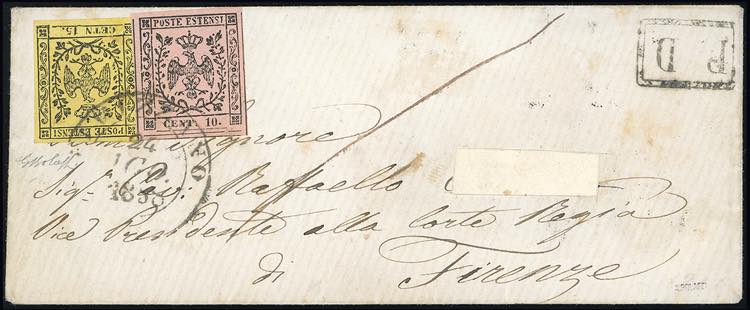 CETN 15.
POSTE ESTENSI
POSTE ESTENSI
CENT. 10.
P D
24
AGO.
1858
Signore
Sig.r Raffaello
Vice Presidente alla Corte Regia
di
Firenze